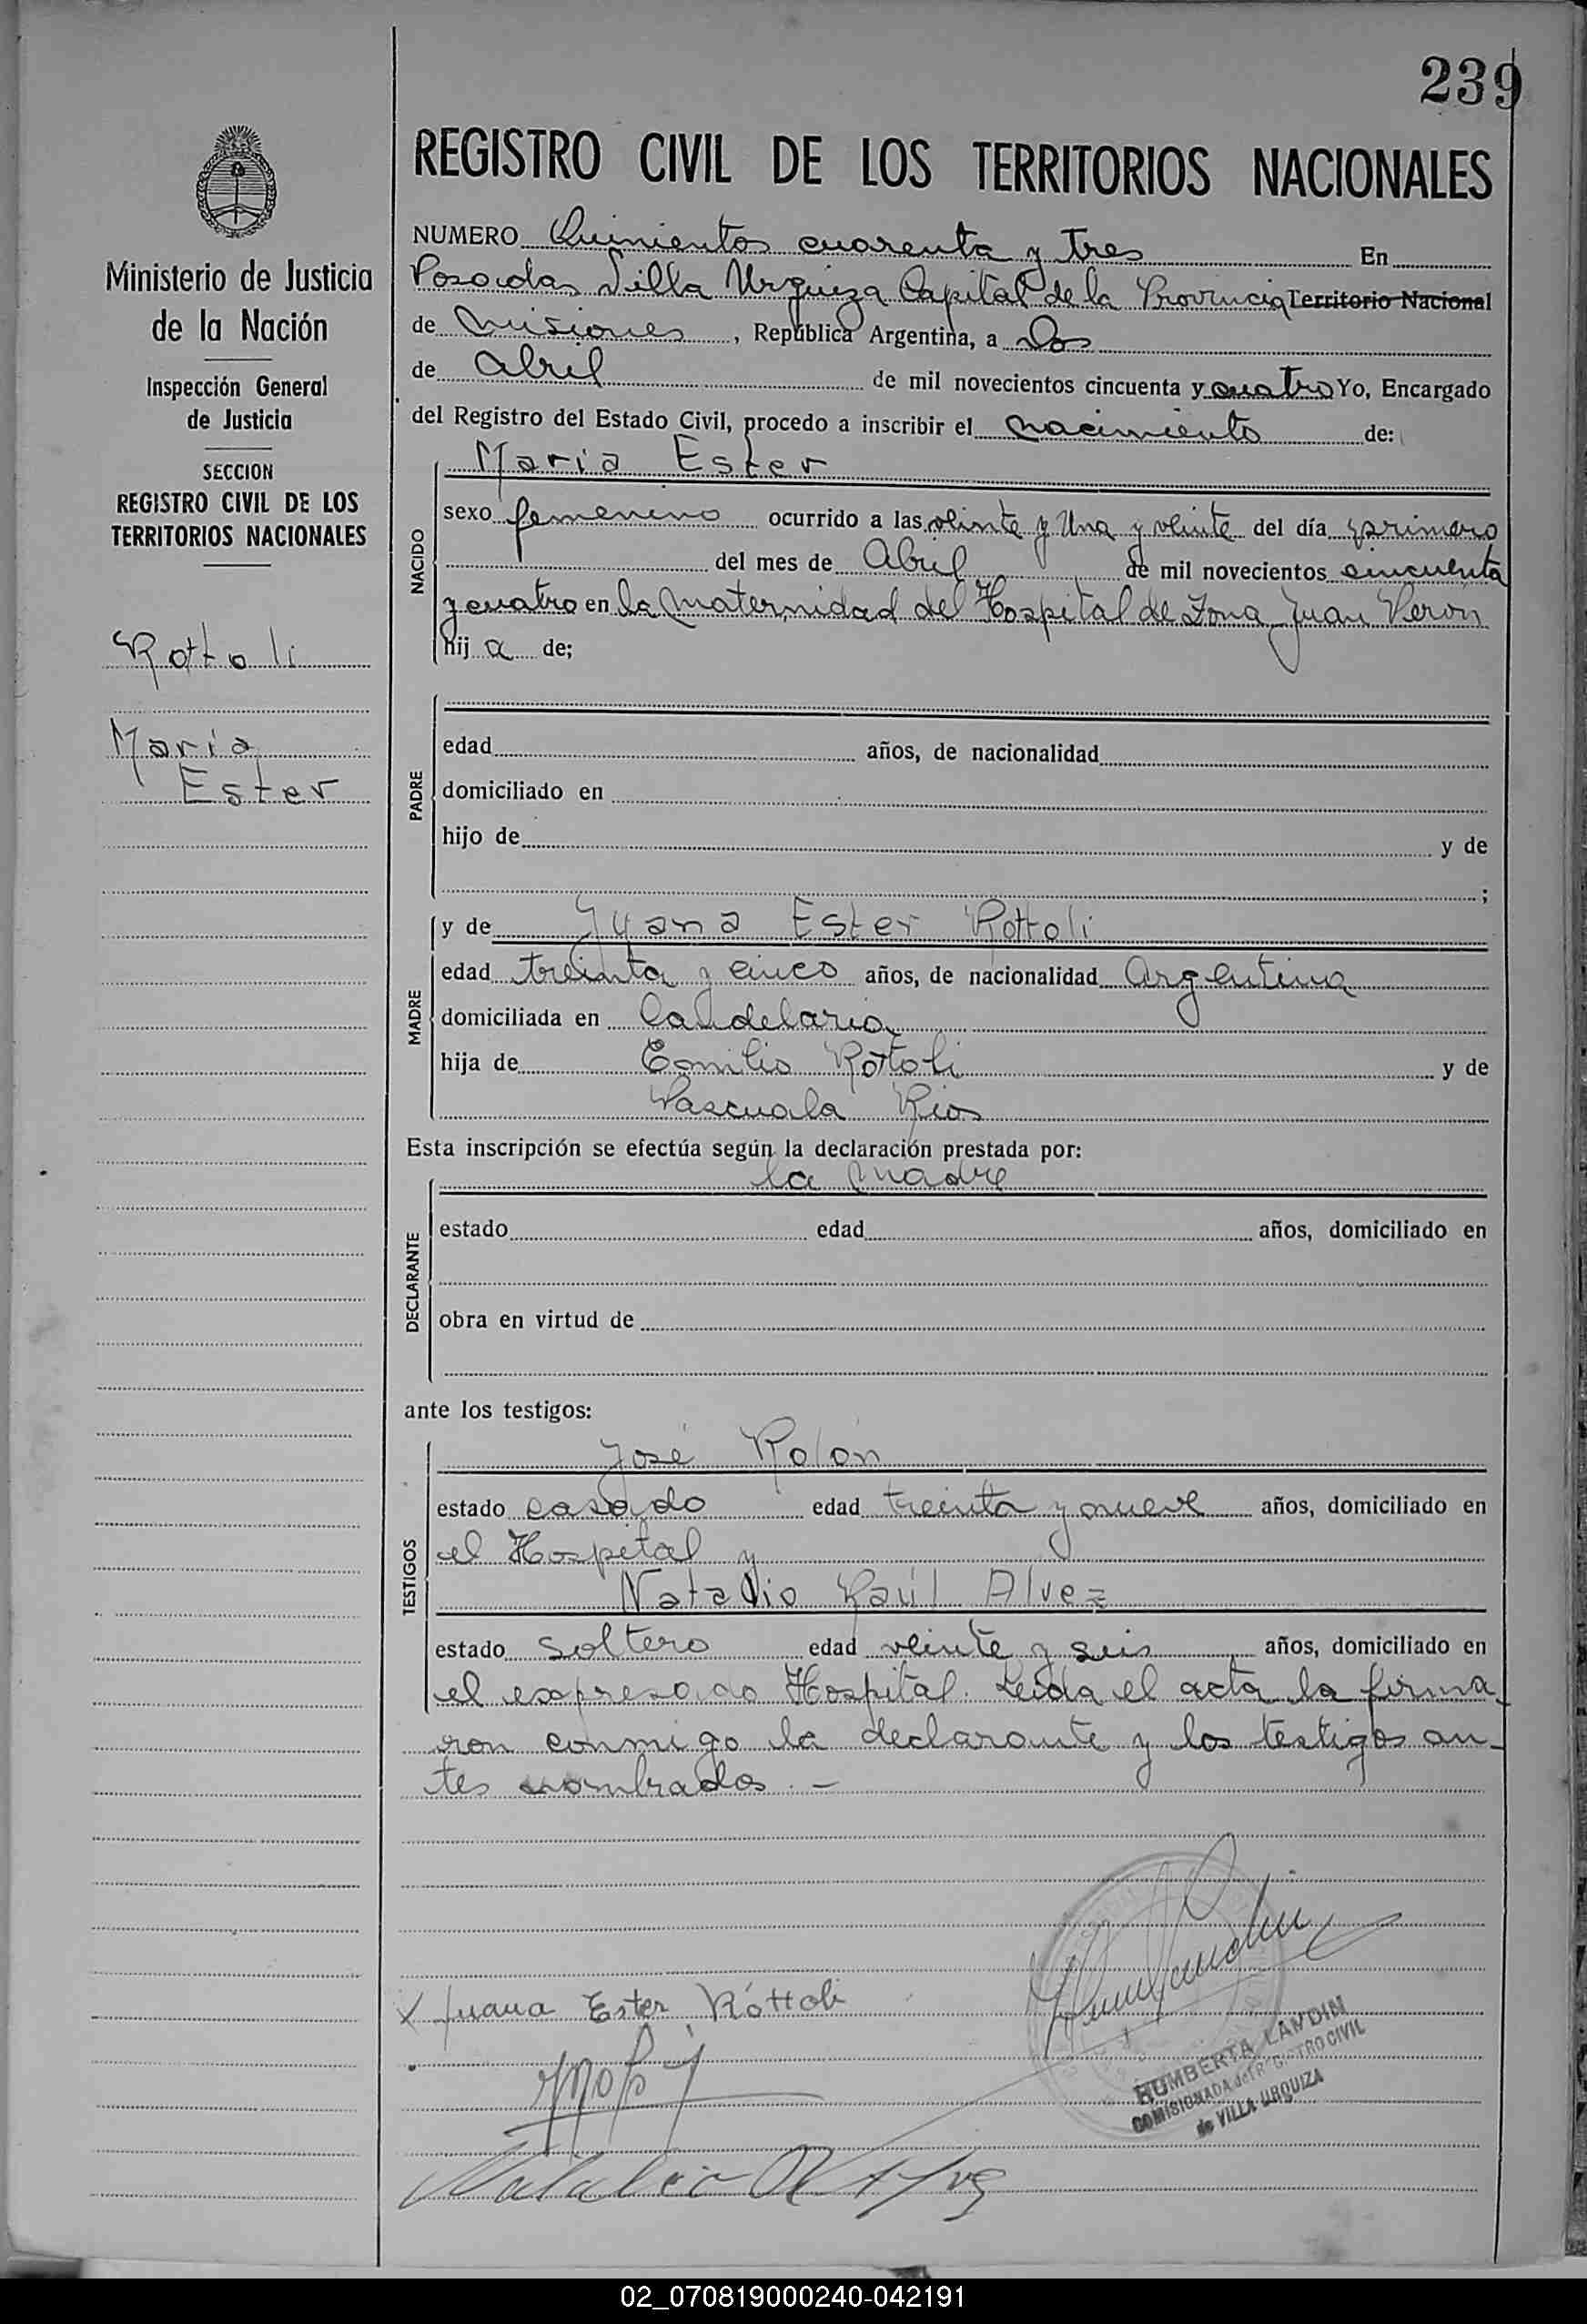 239
REGISTRO CIVIL DE LOS TERRITORIOS NACIONALES
Ministerio de Justicia
de la Nación
Inspección General
de Justicia
SECCION
REGISTRO CIVIL DE LOS
TERRITORIOS NACIONALES
Rottoli
Maria
Ester
NUMERO Quinientos cuarenta y tres En
Posadas Villa Urquiza Capital de la Provincia Territorio Nacional
de Misiones, República Argentina, a Dos
de Abril de mil novecientos cincuenta y cuatro Yo, Encargado
del Registro del Estado Civil, procedo a inscribir el nacimiento de:
NACIDO
Maria Ester
sexo femenino ocurrido a las veinte y Una y veinte del día primero
del mes de Abril de mil novecientos cincuenta
y cuatro en la Maternidad del Hospital de Zona Juan Perón
hij a de;
PADRE
edad años, de nacionalidad
domiciliado en
hijo de y de
;
MADRE
y de Juana Ester Rottoli
edad treinta y cinco años, de nacionalidad Argentina
domiciliada en Candelaria
hija de Emilio Rotoli y de
Pascuala Rios
Esta inscripción se efectúa según la declaración prestada por:
DECLARANTE
la madre
estado edad años, domiciliado en
obra en virtud de
ante los testigos:
TESTIGOS
José Rolón
estado casado edad treinta y nueve años, domiciliado en
el Hospital y
Natalio Raúl Alvez
estado soltero edad veinte y seis años, domiciliado en
el expresado Hospital. Leida el acta la firma-
ron conmigo la declarante y los testigos an-
tes nombrados. –
x Juana Ester Róttoli
HUMBERTA LANDIN
COMISIONADA del REGISTRO CIVIL
de VILLA URQUIZA
02_070819000240-042191